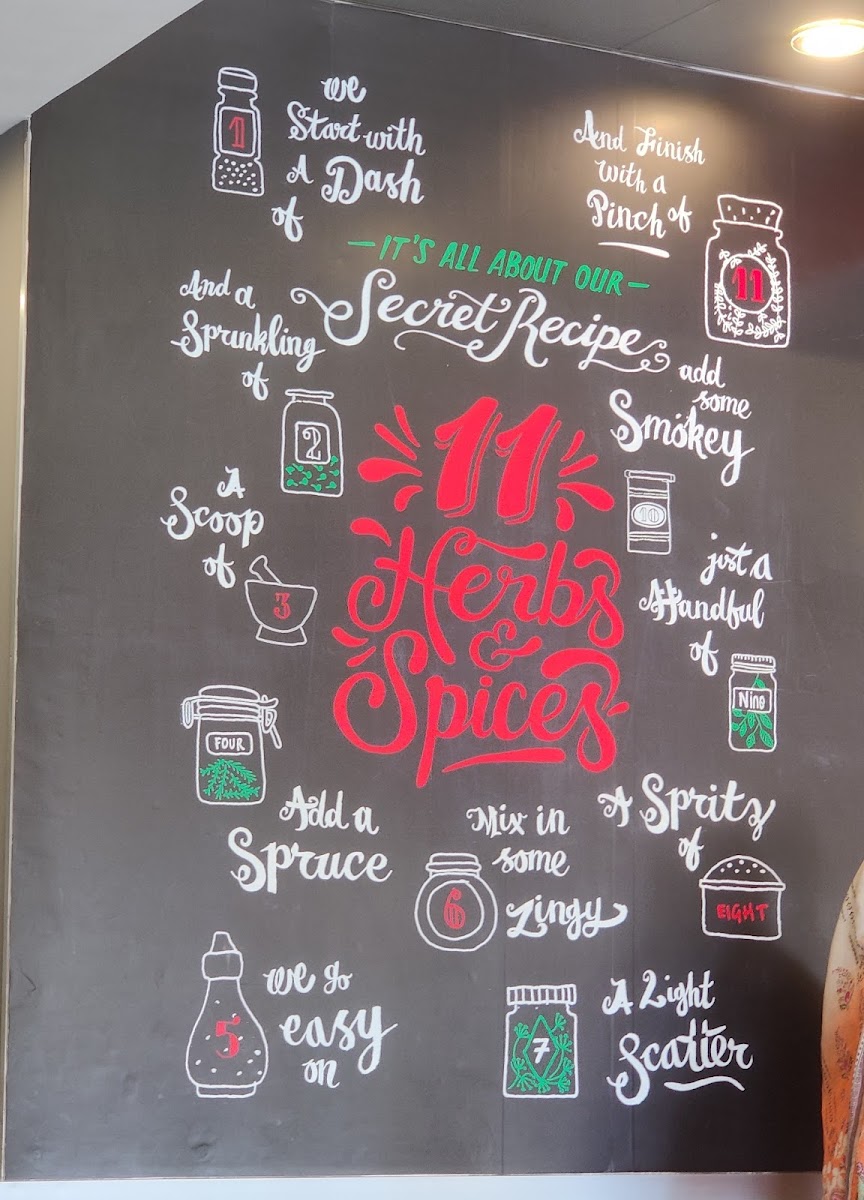 we
Start with
A Dash
of
1
And Finish
with a
Pinch of
11
— IT'S ALL ABOUT OUR —
Secret Recipe
11
Herbs
&
Spices
And a
Sprinkling
of
2
A
Scoop
of
3
FOUR
Add a
Spruce
we go
easy
on
5
Mix in
some
Zingy
6
A Light
Scatter
7
A Spritz
of
EIGHT
just a
Handful
of
Nine
add
some
Smokey
10